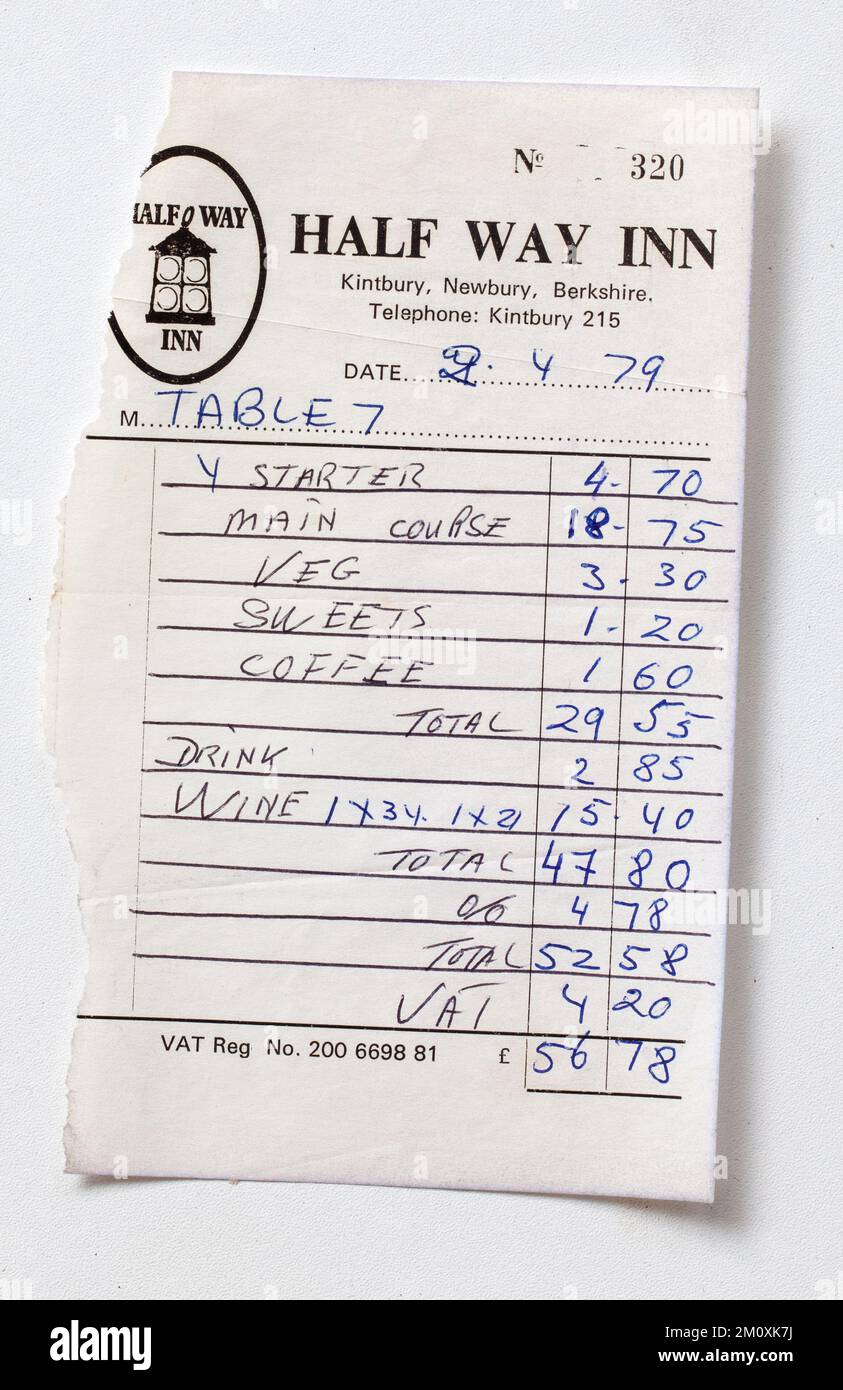 Nº 320
HALF WAY
INN
HALF WAY INN
Kintbury, Newbury, Berkshire.
Telephone: Kintbury 215
DATE 4 79
M. TABLE 7
4 STARTER 4- 70
MAIN COURSE 18- 75
VEG 3- 30
SWEETS 1- 20
COFFEE 1 60
TOTAL 29 55
DRINK 2 85
WINE 1 X 34. 1 X 21 15- 40
TOTAL 47 80
% 4 78
TOTAL 52 58
VAT 4 20
VAT Reg No. 200 6698 81 £ 56 78
alamy
Image ID: 2M0XK7J
www.alamy.com